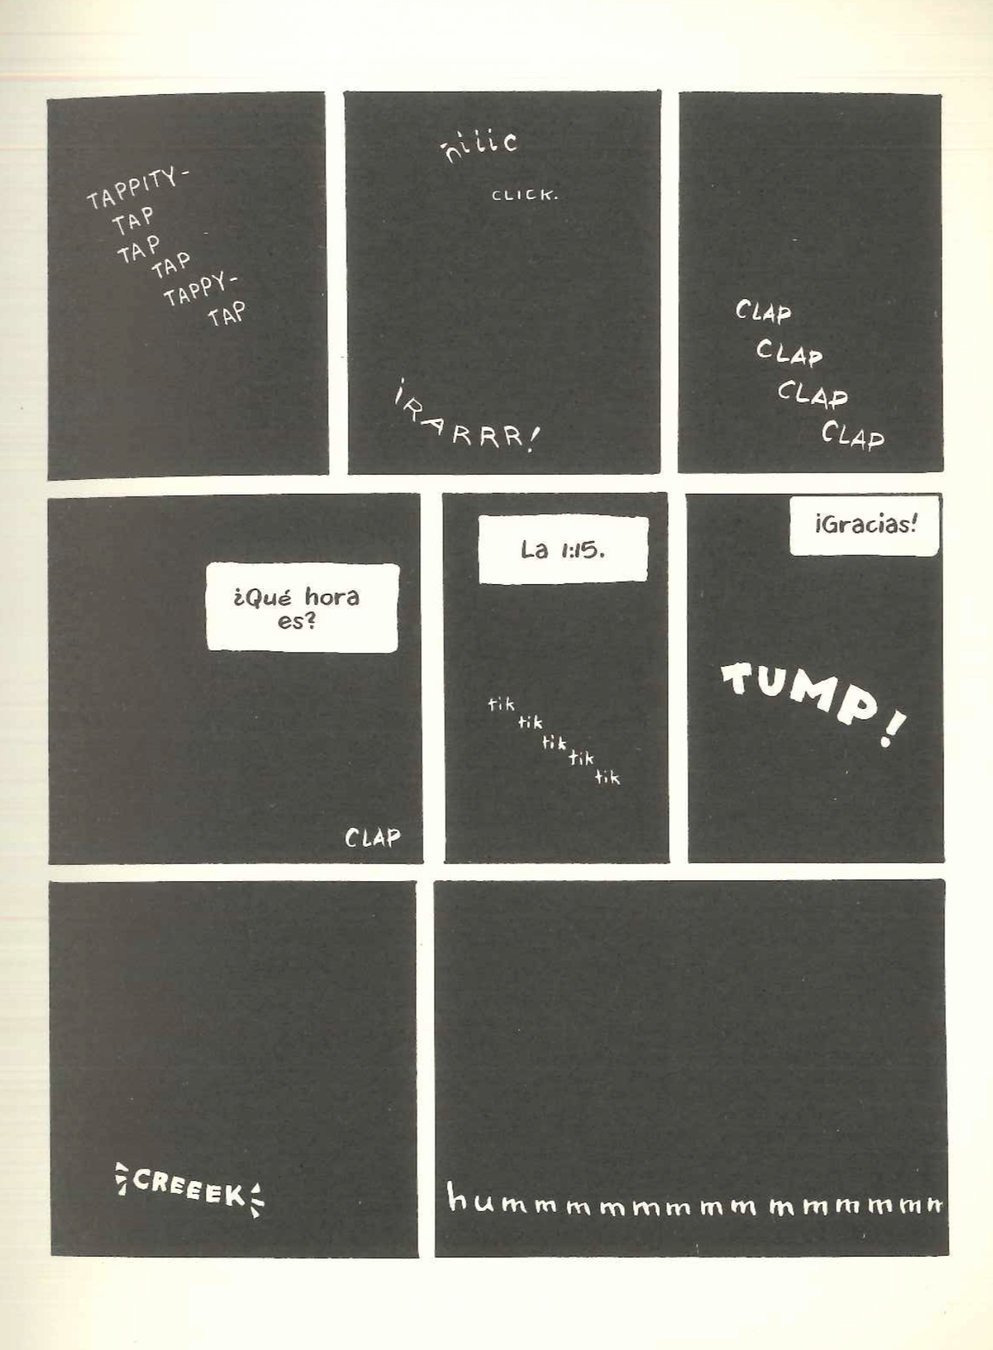 TAPPITY-
TAP
TAP
TAP
TAPPY-
TAP
ñiiic
CLICK.
¡RARRR!
CLAP
CLAP
CLAP
CLAP
¿Qué hora
es?
CLAP
La 1:15.
tik
tik
tik
tik
tik
¡Gracias!
TUMP!
CREEEK
hummmmmmmmmmmmmm